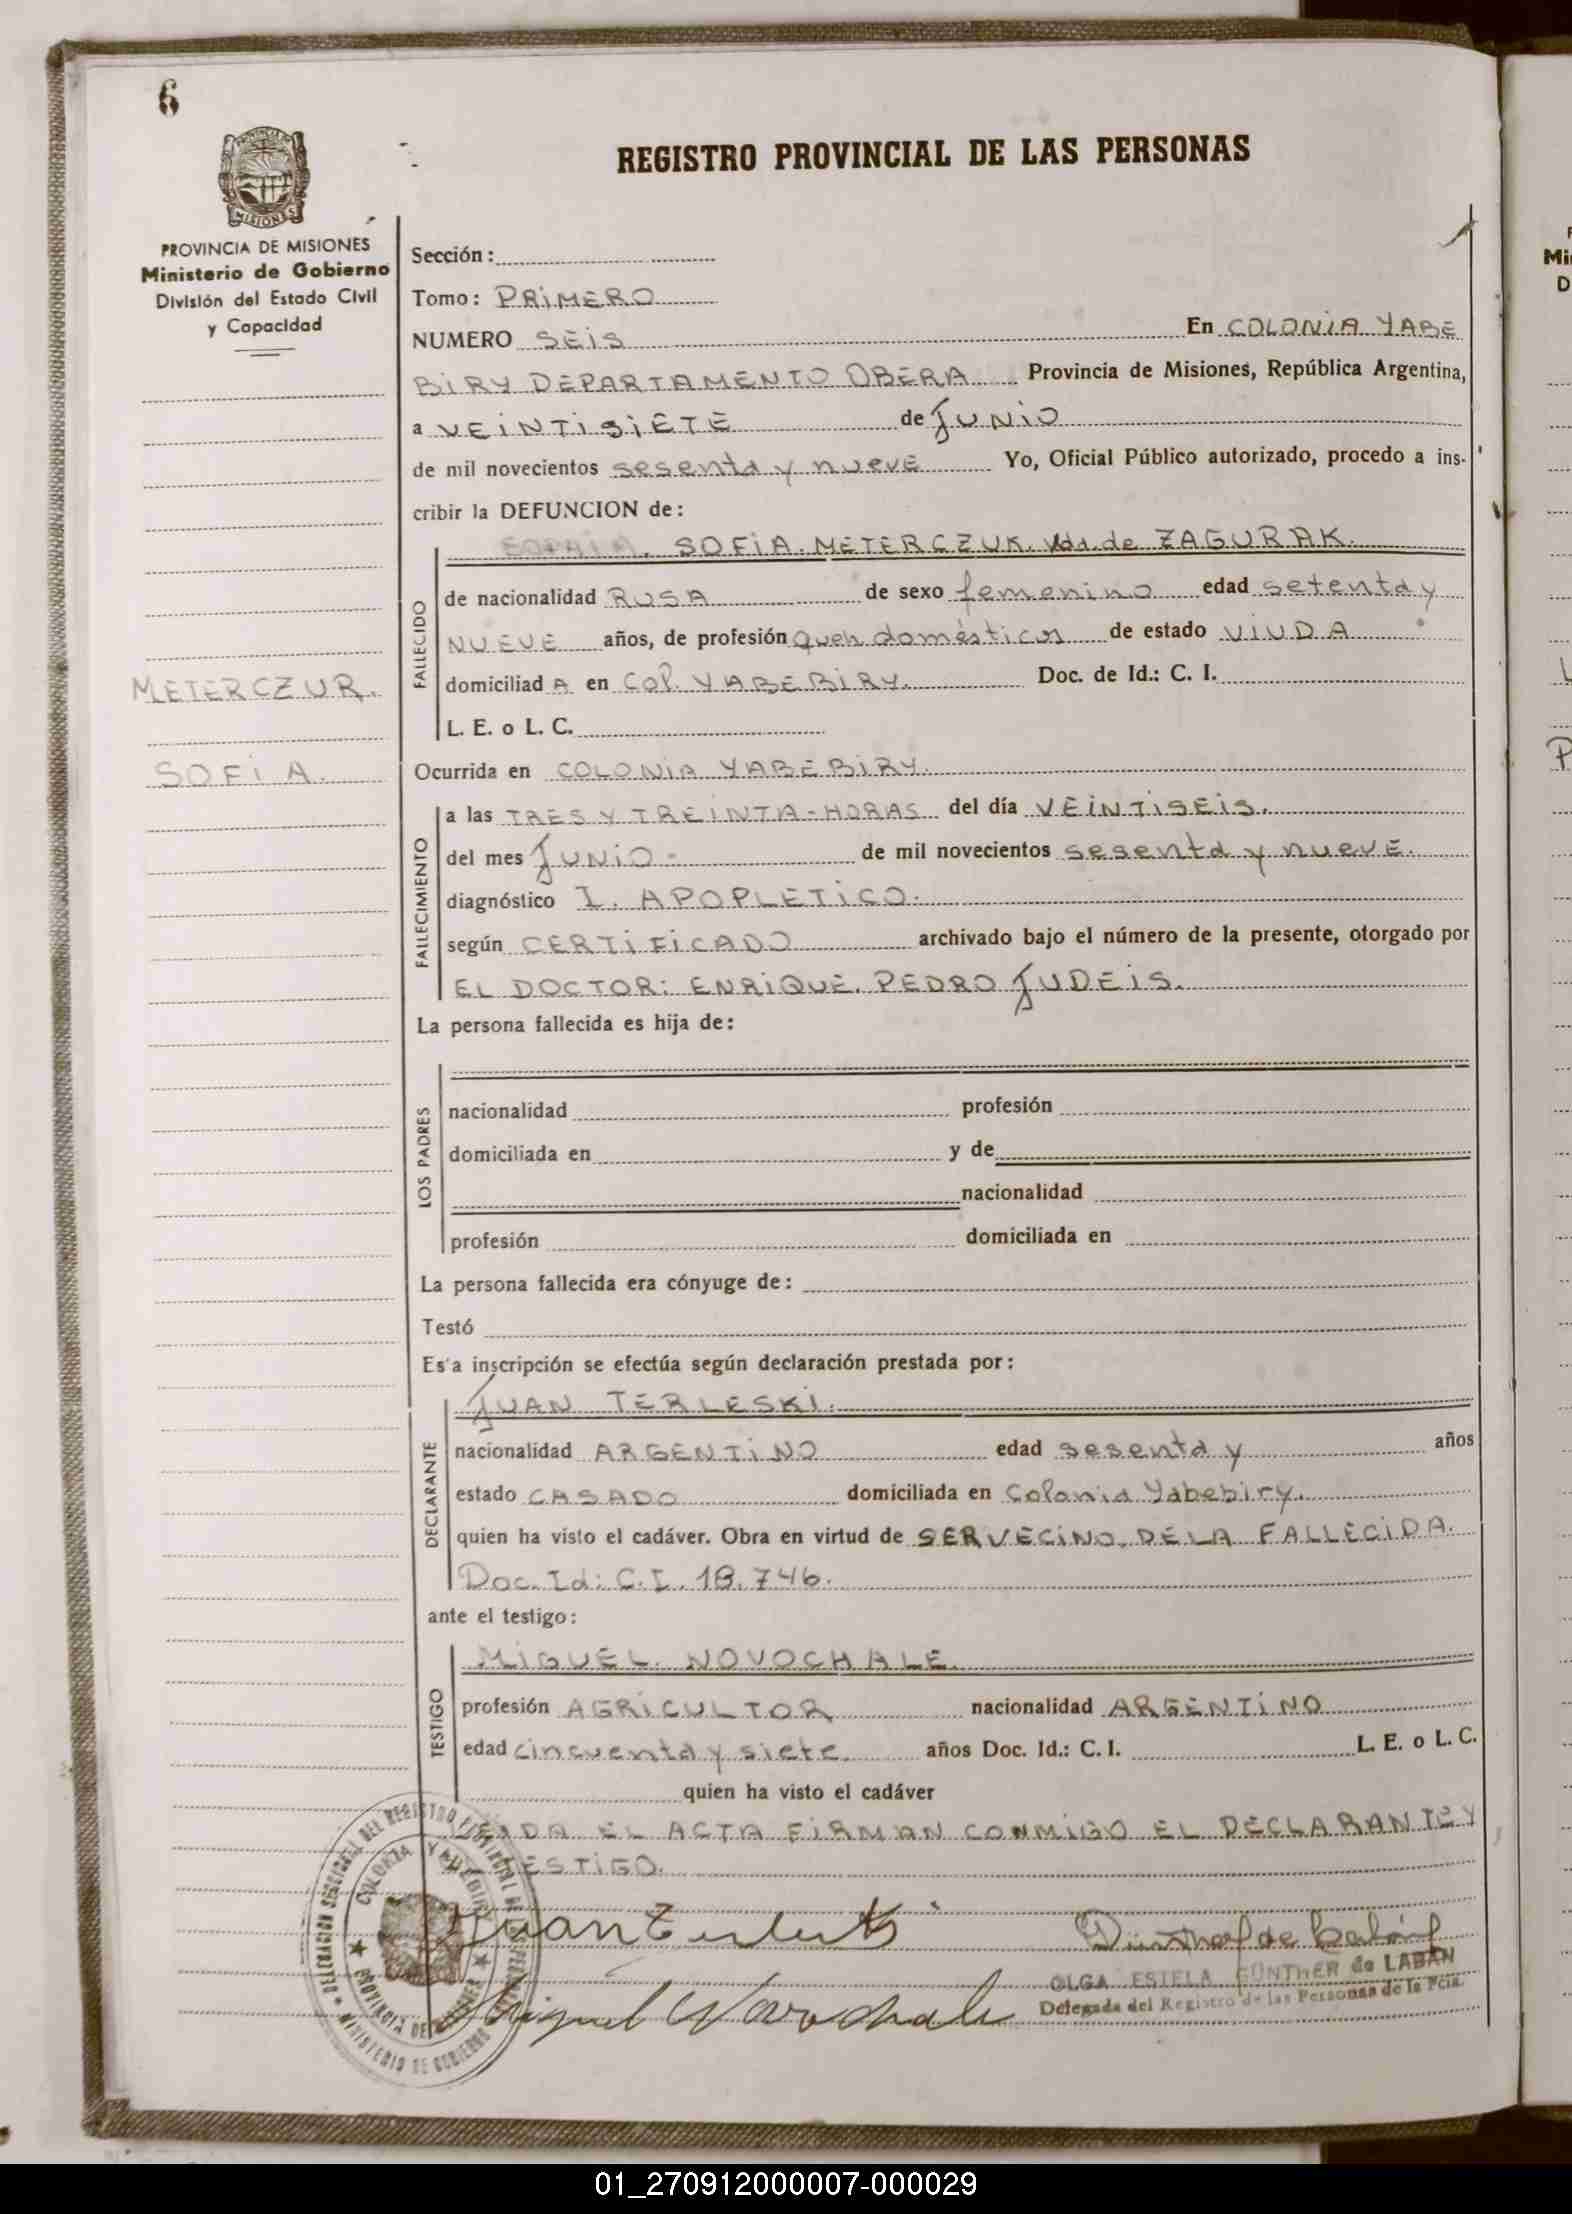 6
PROVINCIA DE MISIONES
Ministerio de Gobierno
División del Estado Civil
y Capacidad
METERCZUR.
SOFIA.
REGISTRO PROVINCIAL DE LAS PERSONAS
Sección:
Tomo: PRIMERO
NUMERO SEIS En COLONIA YABE
BIRY DEPARTAMENTO OBERA Provincia de Misiones, República Argentina,
a VEINTISIETE de JUNIO
de mil novecientos sesenta y nueve Yo, Oficial Público autorizado, procedo a ins-
cribir la DEFUNCION de:
SOFIA. METERCZUK. Vda. de ZAGURAK.
FALLECIDO
de nacionalidad RUSA de sexo femenino edad setenta y
NUEVE años, de profesión queh domésticos de estado VIUDA
domiciliad A en Col. YABEBIRY. Doc. de Id.: C. I.
L. E. o L. C.
Ocurrida en COLONIA YABEBIRY.
FALLECIMIENTO
a las TRES Y TREINTA-HORAS del día VEINTISEIS.
del mes JUNIO- de mil novecientos sesenta y nueve.
diagnóstico I. APOPLETICO.
según CERTIFICADO archivado bajo el número de la presente, otorgado por
EL DOCTOR: ENRIQUE. PEDRO JUDEIS.
La persona fallecida es hija de:
LOS PADRES
nacionalidad profesión
domiciliada en y de
nacionalidad
profesión domiciliada en
La persona fallecida era cónyuge de:
Testó
Es a inscripción se efectúa según declaración prestada por:
JUAN TERLESKI.
DECLARANTE
nacionalidad ARGENTINO edad sesenta y años
estado CASADO domiciliada en Colonia Yabebiry.
quien ha visto el cadáver. Obra en virtud de SER VECINO. DE LA FALLECIDA.
Doc. Id: C.I. 18.746.
ante el testigo:
MIGUEL. NOVOCHALE.
TESTIGO
profesión AGRICULTOR nacionalidad ARGENTINO
edad cincuenta y siete. años Doc. Id.: C. I. L. E. o L. C.
quien ha visto el cadáver
LEIDA EL ACTA FIRMAN CONMIGO EL DECLARANTE Y
TESTIGO.
Juan
Miguel Novochale
OLGA ESTELA GÜNTHER de LABAN
Delegada del Registro de las Personas de la Pcia.
COLONIA YABEBIRY
PROVINCIA DE MISIONES
MINISTERIO DE GOBIERNO
01_270912000007-000029